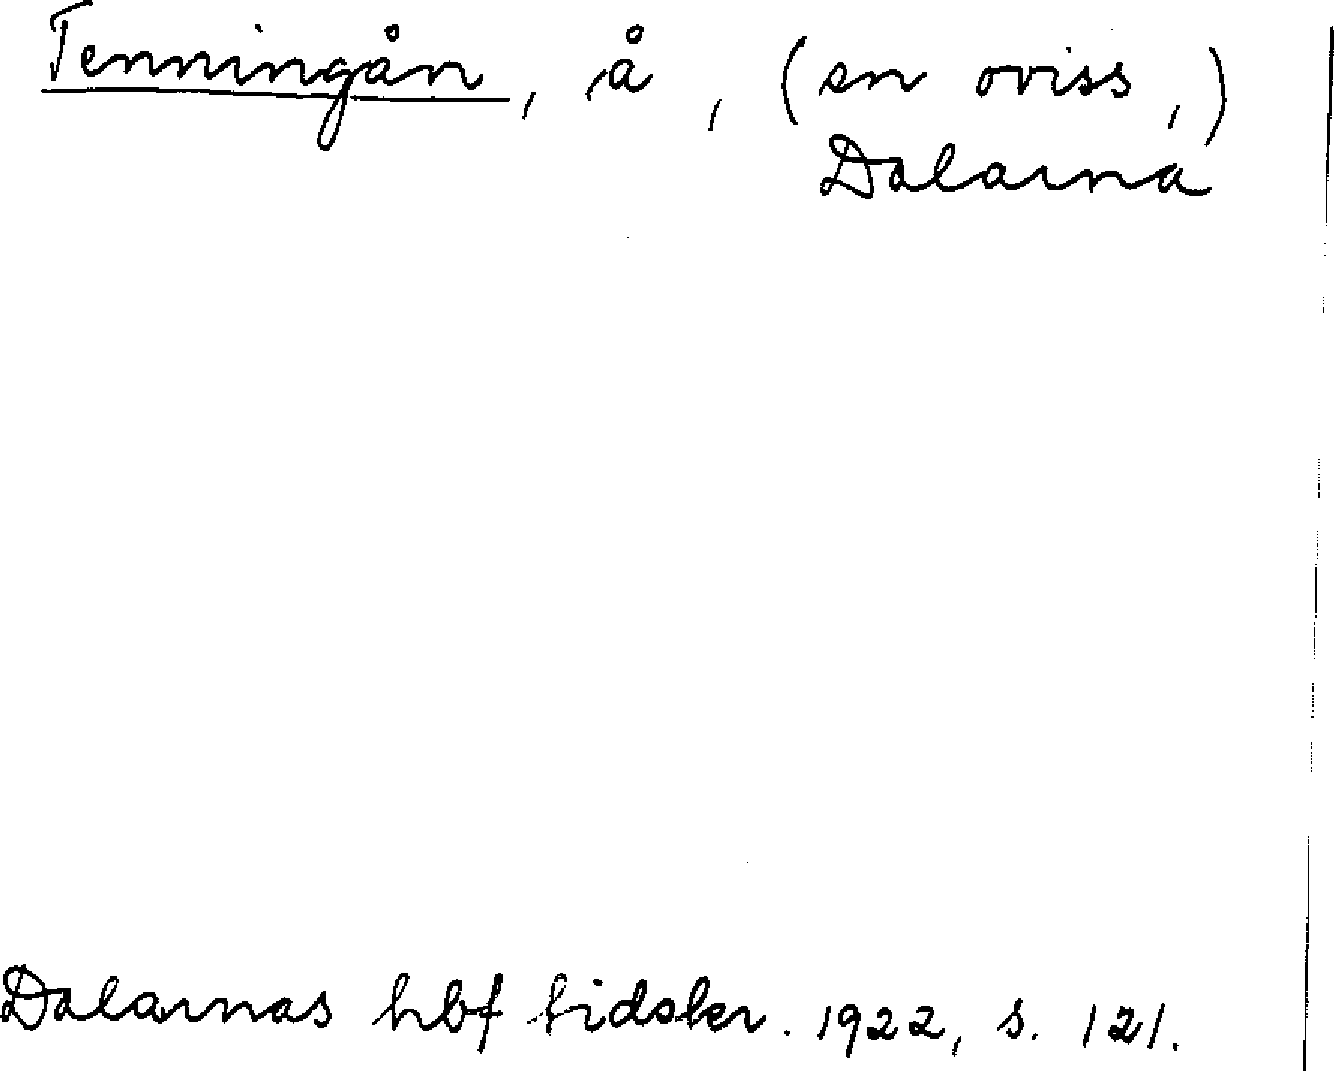 Tenningån, å, (en oviss,)
Dalarna
Dalarnas hbf tidskr. 1922, s. 121.